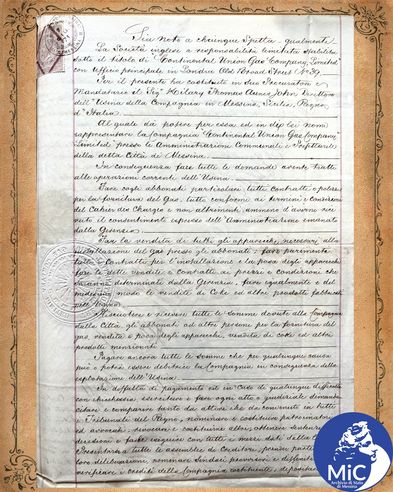 Sia Noto a chiunque Spetta qualmente
La Società inglese a responsabilità limitata stabilita
sotto il titolo di "Continental Union Gas Company Limited"
con ufficio principale in Londra Old Broad Street No 39.
Per il presente ha costituito in suo Procuratore e
Mandatario il Sigr Hilary Thomas John Direttore
dell'Usina della Compagnia in Messina, Sicilia, Regno
d'Italia.
Al quale dà potere per essa ed in di lei nome
rappresentare la Compagnia "Continental Union Gas Company
Limited" presso le Amministrazioni Communale e Prefettizia
della detta Città di Messina.
In conseguenza fare tutte le domande aventi tratto
alle operazioni corrente dell'Usina.
Fare cogli abbonati particolari tutti contratti o polizze
per la fornitura del Gas, tutto conforme ai termini e condizioni
del Cahier des Charges e non altrimenti, ammeno d'avere rice-
vuto il consentimento espresso dell'Amministrazione emanata
dalla Gerenzia.
Fare la vendita di tutti gli apparecchi necessarj alla
installazione del Gas presso gli abbonati, fare parimente
tutti Contratti per l'installazione e la posa degli apparecchi
fare le dette vendite e contratti ai prezzi e condizioni che
saranno determinati dalla Gerenzia, fare egualmente e del
medesimo modo le vendite di Coke ed altri prodotti fabbricati
nell'Usina.
Riscuotere e ricevere tutte le somme dovute alla Compagnia
dalla Città, gli abbonati ad altre persone per la fornitura del
gas vendita e posa degli apparecchi, vendita di coke ed altri
prodotti menzionati.
Pagare ancora tutte le somme che per qualunque causa
può o potrà essere debitrice la Compagnia in conseguenza della
esplotazione dell'Usina.
In diffalta di pagamento ed in Caso di qualunque difficoltà
con chicchessia, esercitare e fare ogni atto giudiziale dimande
citare e comparire tanto da attore che da convenuto in tutti
i Tribunale del Regno, nominare e costituire patrocinatori
ed avvocati, rivocarli e costituirne altri, ottenere sentenze
decisioni e farle eseguire con tutti i mezzi dati dalla
Presentarsi a tutte le assemblee di Creditori, prendere parte
loro deliberazione, nominare Sindaci provvisori e definitivi
verificare i crediti della Compagnia costituente, depositare
MiC
Archivio di Stato
di Messina